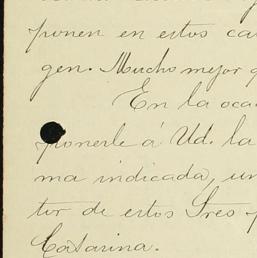 ponen en estos ca
gen. Mucho mejor q
En la oca
ponerle á Ud. la
ma indicada, un
tor de estos Tres
Catarina.